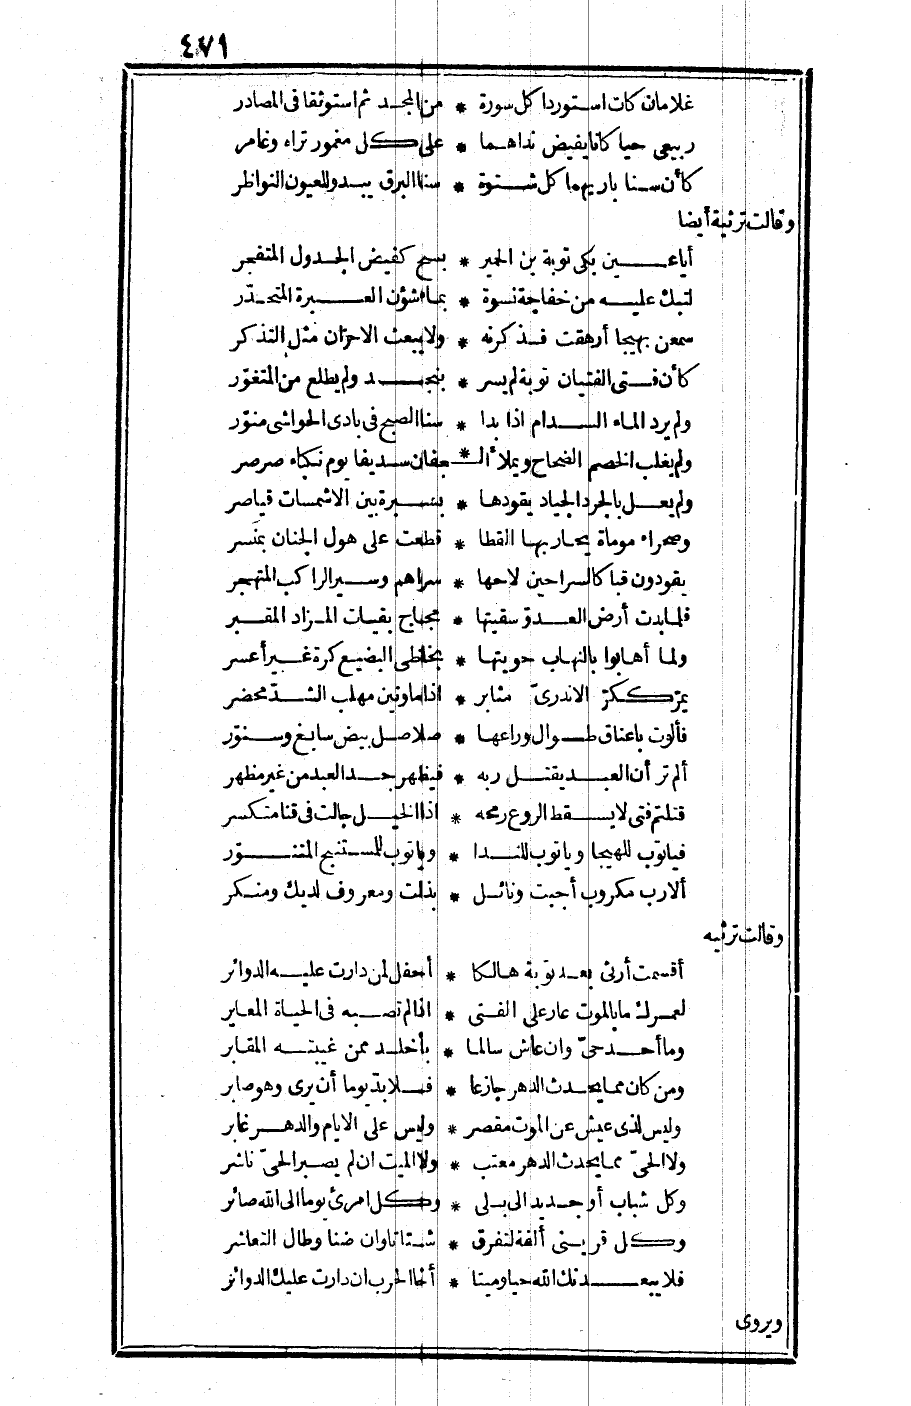 ٤٧١
غلامان كان استوردا كل سورة * من المجد ثم استوثقا فى المصادر
ربيعى حيا كانا يفيض نداهما * على كل مغمور تراه وغامر
كأن سنا باريهما كل شتوة * سنا البرق يبدو للعيون النواظر
وقالت ترثية أيضا
أيا عين بكى توبة بن الحمير * بسح كفيض الجدول المتفجر
لتبك عليه من خفاجة نسوة * بماء شؤن العبرة المتحدّر
سمعن بهيجا أرهقت فذكرنه * ولا يبعث الاحزان مثل التذكر
كأن فتى الفتيان توبة لم يسر * بنجد ولم يطلع من المتغوّر
ولم يرد الماء السدام اذا بدا * سنا الصبح فى بادى الحواشى منوّر
ولم يغلب الخصم الضجاح ويملأ الـ * جفان سديفا يوم نكباء صرصر
ولم يعل بالجرد الجياد يقودها * بسيرة بين الاشمسات قياصر
وصحراء موماة يحار بها القطا * قطعت على هول الجنان بمنسر
يقودون قبا كالسراحين لاحها * سراهم وسير الراكب المتهجر
فلما بدت أرض العدوّ سقيتها * مجاج بقيات المزاد المقير
ولما أهابوا بالنهاب حويتها * بخاظى البضيع كرة غير أعسر
يمرّ ككرّ الاندرىّ مثابر * اذا ما ونين مهلب الشدّ محضر
فألوت باعناق طوال وراعها * صلاصل بيض سابغ وسنوّر
ألم تر أن العبد يقتل ربه * فيظهر جد العبد من غير مظهر
قتلتم فتى لا يسقط الروع رمحه * اذا الخيل جالت فى قنا متكسر
فياتوب للهيجا وياتوب للندا * وياتوب للمستنبح المتنوّر
ألا رب مكروب أجبت ونائل * بذلت ومعروف لديك ومنكر
وقالت ترثيه
أقسمت أرثى بعد توبة هالكا * أحفل لمن دارت عليه الدوائر
لعمرك ما بالموت عار على الفتى * اذا لم تصبه فى الحياة المعاير
وما أحد حىّ وان عاش سالما * بأخلد ممن غيبته المقابر
ومن كان مما يحدث الدهر جازعا * فلا بدّ يوما أن يرى وهو صابر
وليس لذى عيش عن الموت مقصر * وليس على الايام والدهر غابر
ولا الحىّ مما يحدث الدهر معتب * ولا الميت ان لم يصبر الحىّ ناشر
وكل شباب أو جديد الى بلى * وكل امرئ يوما الى الله صائر
وكل قرينى ألفة لتفرق * شتاتا وان ضنا وطال التعاشر
فلا يبعدنك الله حيا وميتا * أخا الحرب ان دارت عليك الدوائر
ويروى